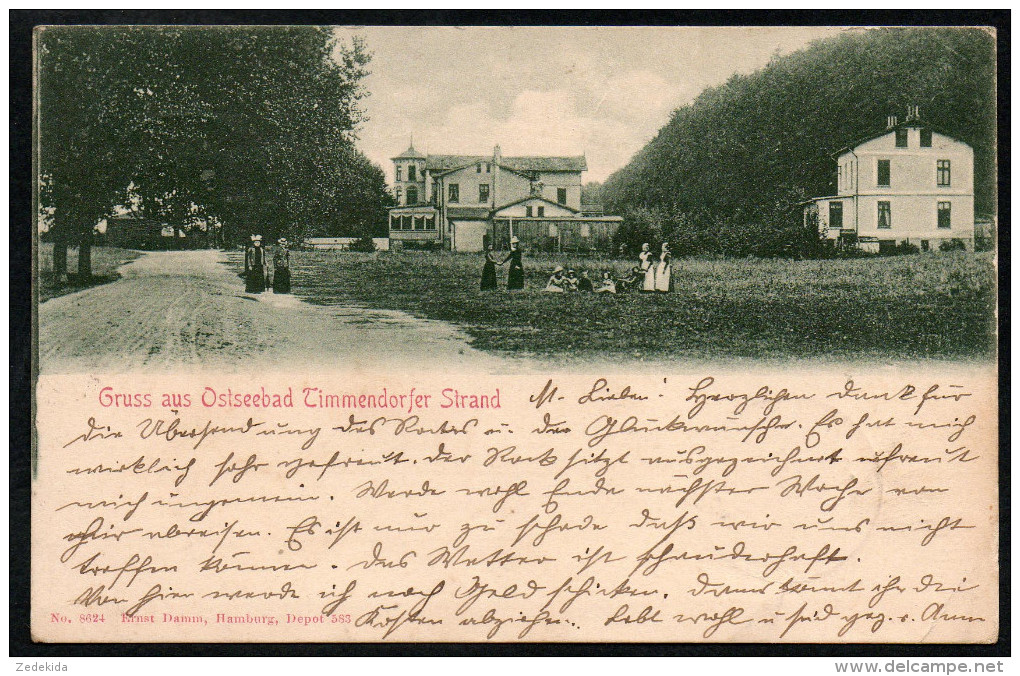 Gruss aus Ostseebad Timmendorfer Strand
M. Lieben! Herzlichen Dank für
die Übersendung des Rockes u. der Glückwünsche. Es hat mich
wirklich sehr gefreut. Der Rock sitzt ausgezeichnet u freut
mich ungemein. Werde wohl Ende nächster Woche von
hier abreisen. Es ist nur zu schade daß wir uns nicht
treffen können. Das Wetter ist schauderhaft.
Von hier werde ich noch Geld schicken. Dann könnt ihr die
Kosten abziehen. Lebt wohl u seid geg. v. Anna
No. 8624 Ernst Damm, Hamburg, Depot 583
Zedekida
www.delcampe.net